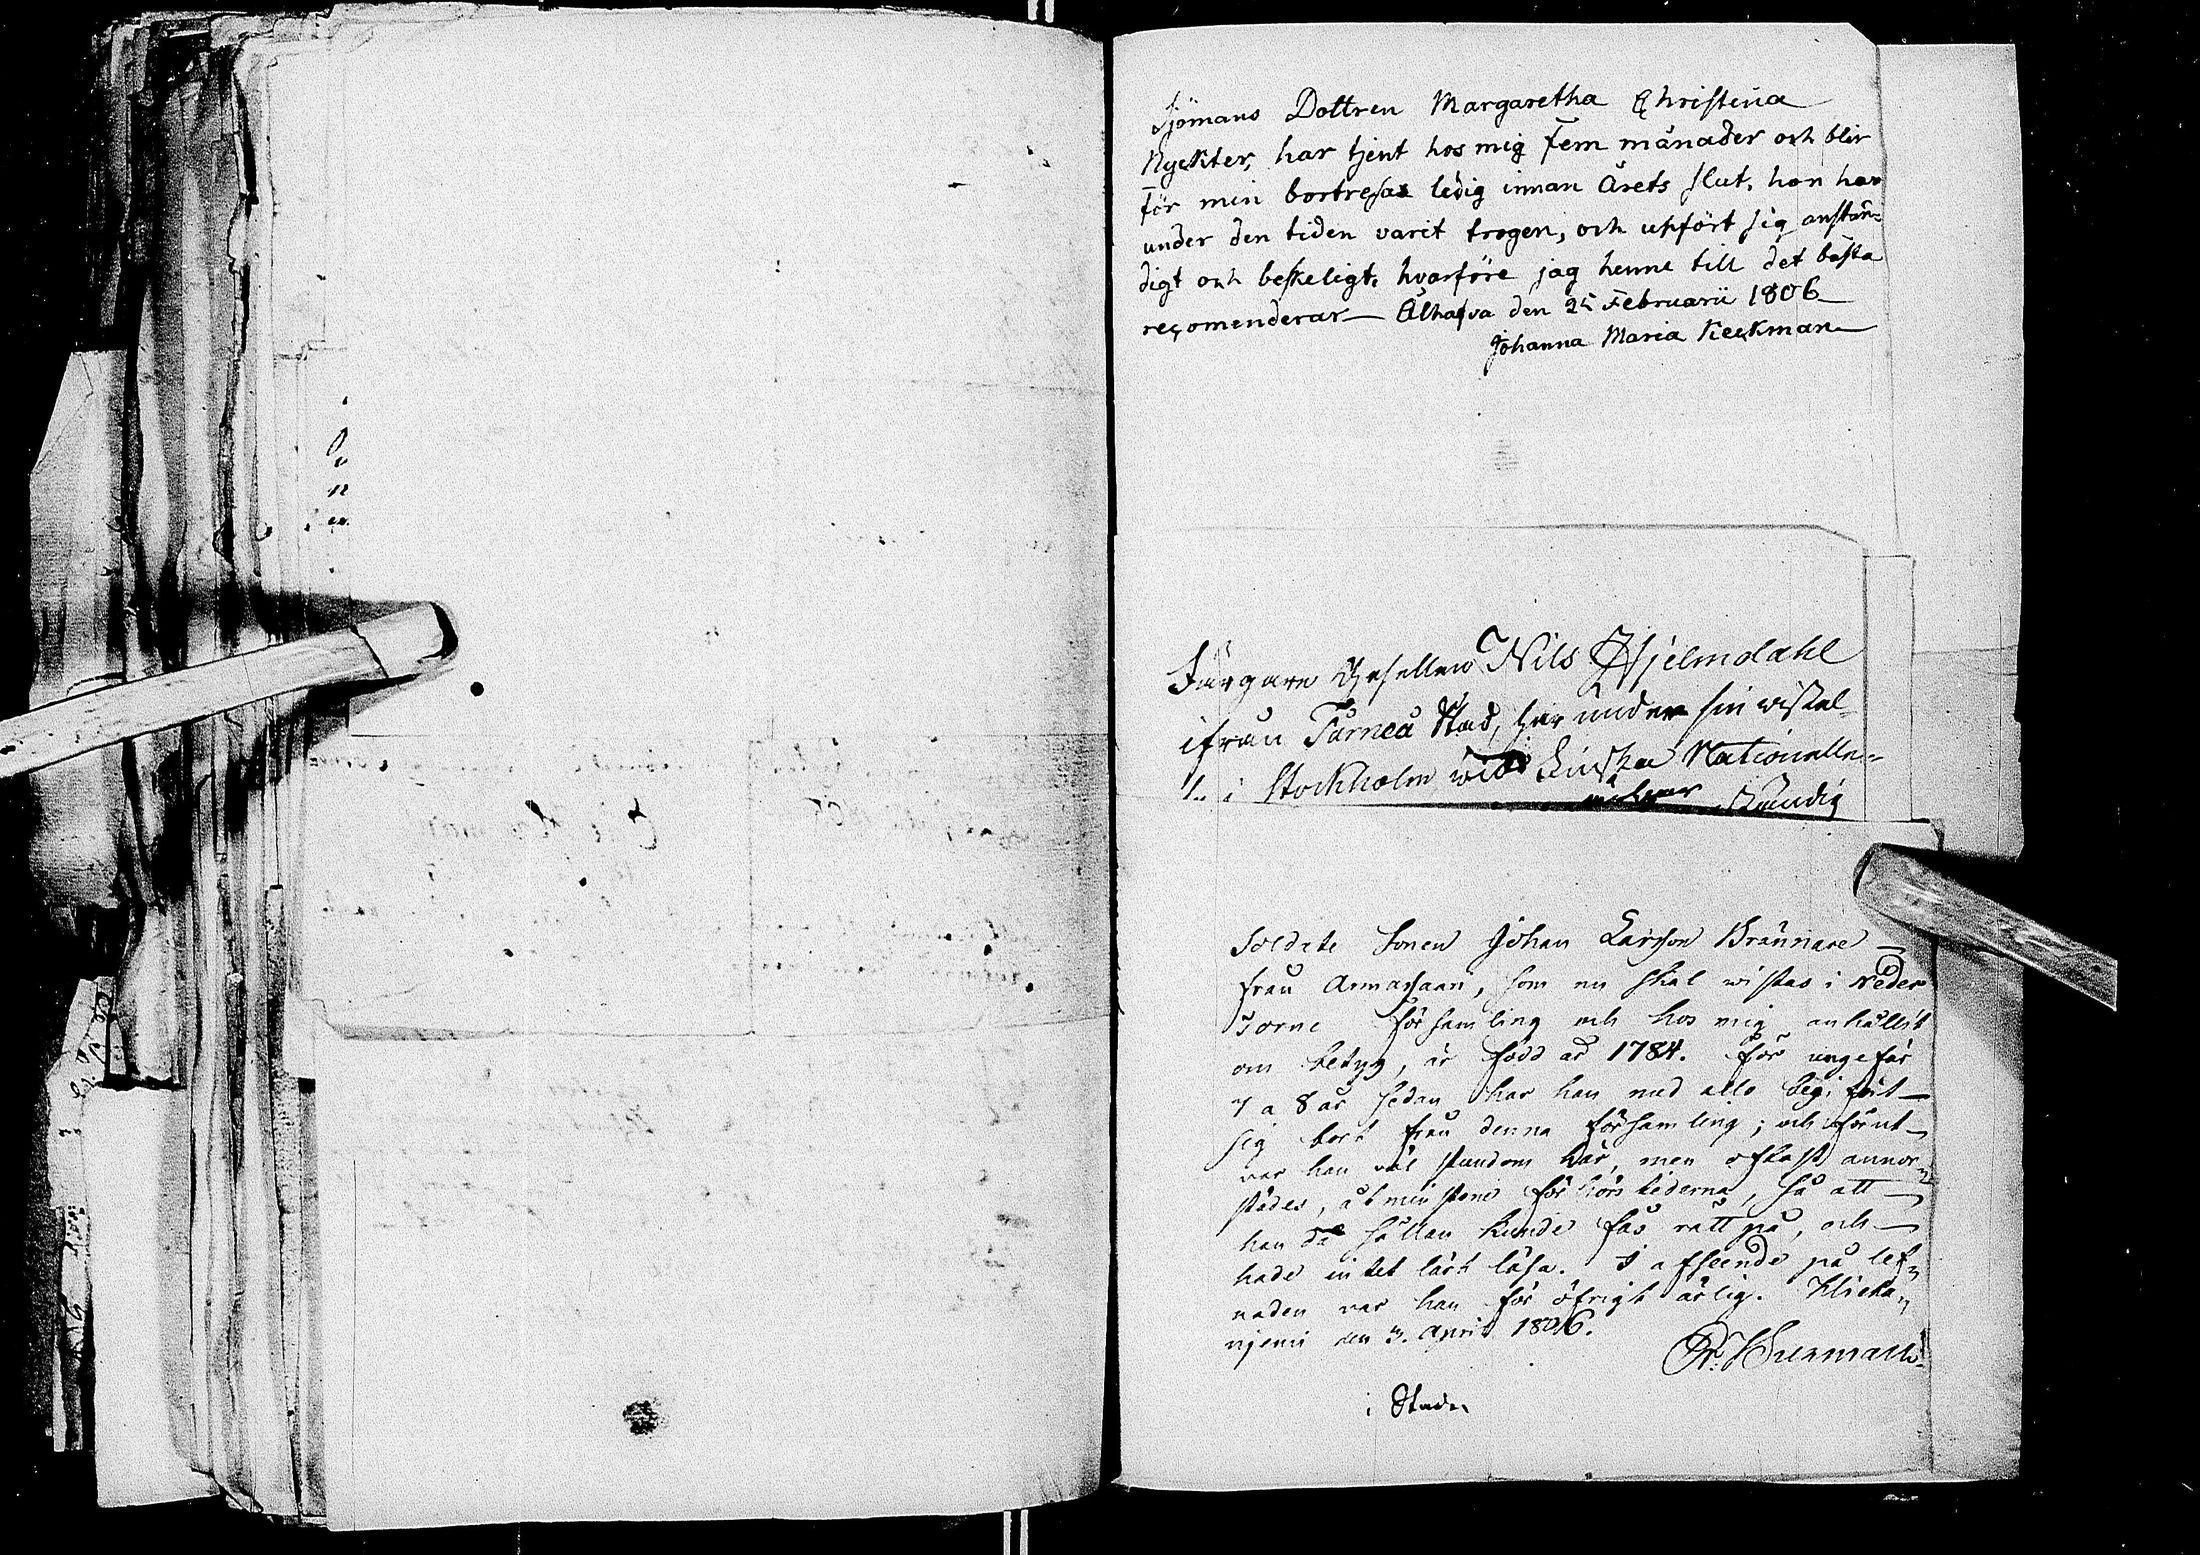 Sjömans Dottren Margaretha Christina
Nyckter, har tjent hos mig Fem månader och blir
för min bortresa ledig innan Årets slut, hon har
under den tiden varit trogen, och upfört sig anstän-
digt och beskeligt. hvarföre jag henne till det bästa
recomenderar Alhafva den 25 Februarii 1806
Johanna Maria Keckman
Färgare Gesellen Nils Hjelmdahl
ifrån Tårneå Stad, har under sin vistel-
i Stockholm wid Finska Nationella
ständig
Soldate Sonen Johan Larsson Brännare
från Armasaari, som nu skal wistas i Neder
Torne församling och hos mig anhållit
om betyg, är född år 1784. För ungefär
7 a 8 år sedan har han med allo begifvit
sig bort från denna församling; och förut
var han väl stundom här, men oftast annor-
städes, åtminstone förhörs tiderna, så att
han då sällan kunde fås rätt på, och
hade intet lärt läsa. I afseende på lef-
naden var han för öfrigt ärlig. Hieta-
niemi den 3. April 1806.
i Staden